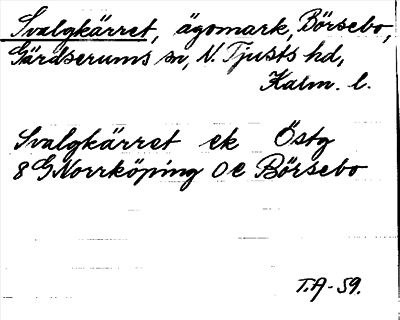 Svalgkärret, ägomark, Börsebo,
Gärdserums sn, N. Tjusts hd,
Kalm. l.
Svalgkärret ek Östg
8 G Norrköping 0 e Börsebo
T.A-59.